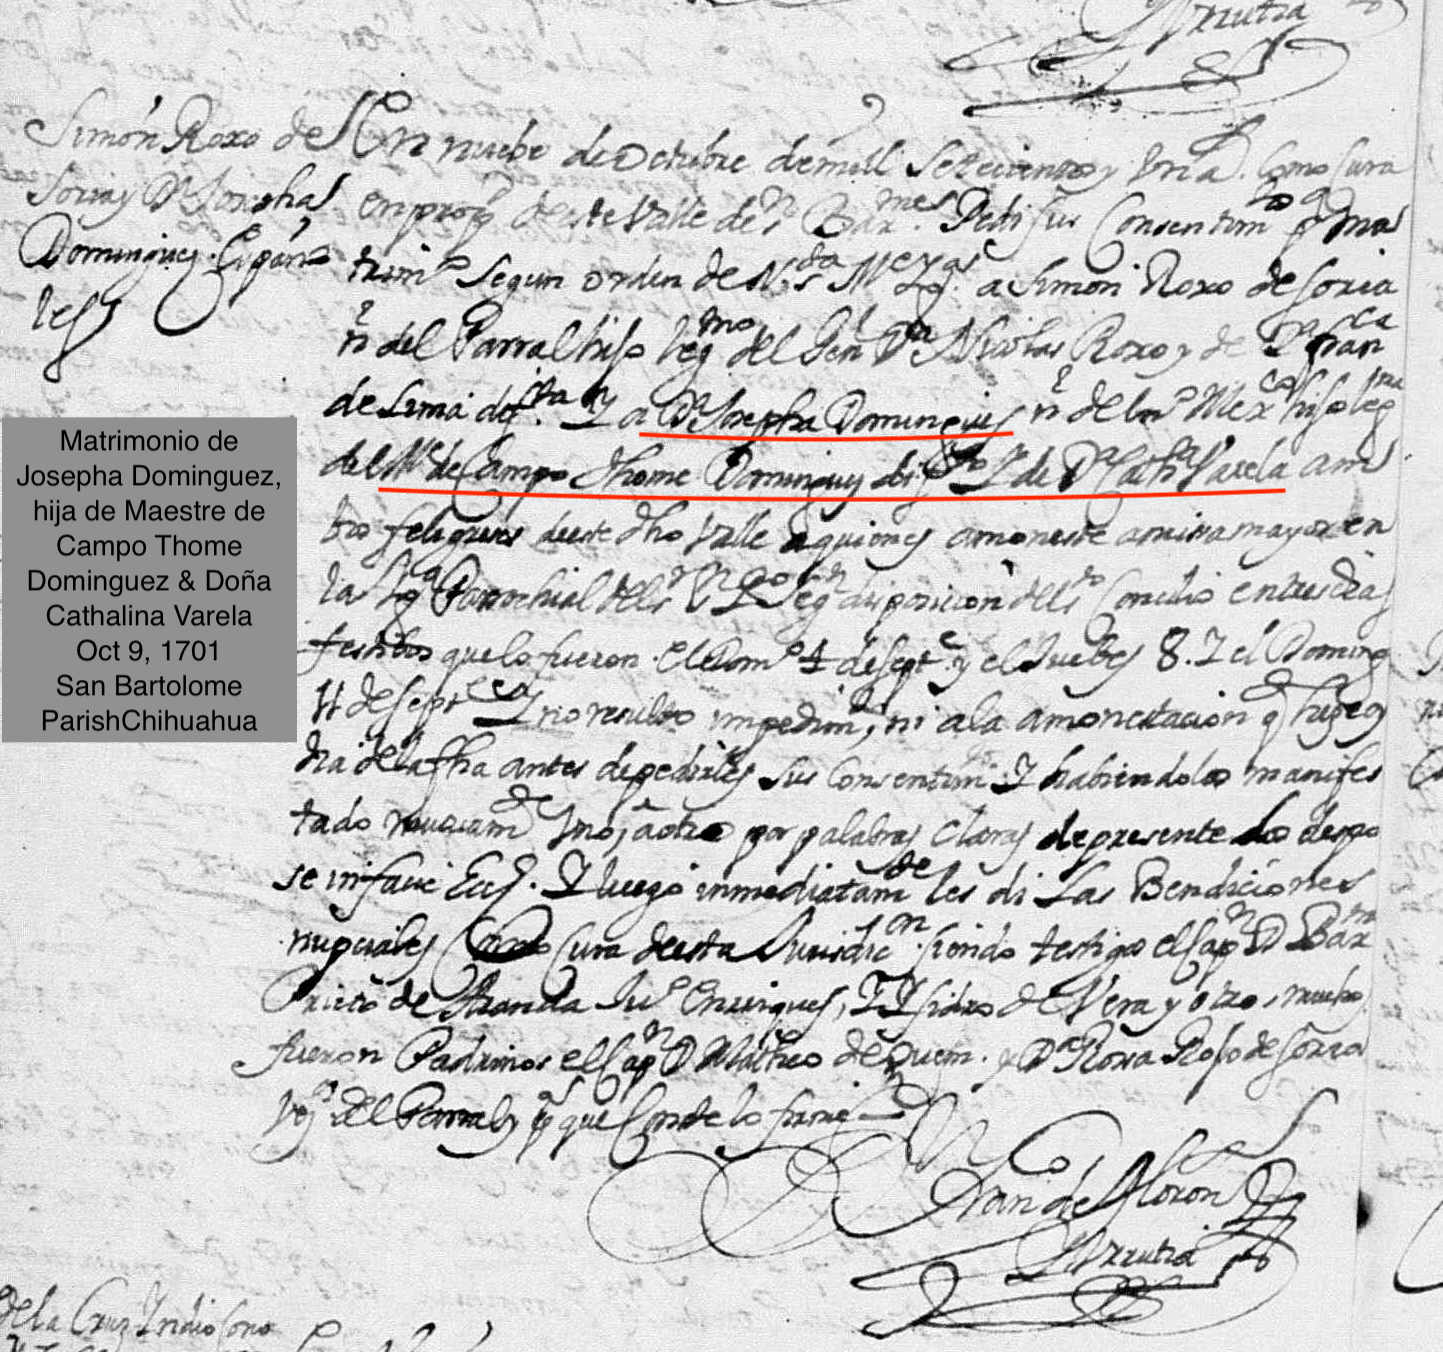 Urrutia
Simón Roxo de
Soria y Dª Josepha
Dominguez. Españo
les
En nuebe de Octubre de mill Setecientos y Un a. Como Cura
en prop. de este Valle de S.n Bar.mes Pedi sus Consentim.tos p.a Ma
trim.o Segun orden de N.s a Simon Roxo de Soria
n. del Parral hijo leg.mo del Gen.l D.n Nicolas Roxo y de D.a Fran.ca
de Lima def.ta Y a D.a Josepha Domingues n. de la Mex.co hija leg.ma
del M.e de Campo thome Dominguez di f.to Y de D.a Cath.a Varela am
bos feligreses deeste dho Valle aquiones amoneste a misa mayor en
la Parrochial del S.r S.n seg.n disposicion del S.to Concilio en tres dias
festibos que lo fueron el Dom.o 4 de Sept.e y el Juebes 8. Y el Doming
11 de Sept.e Y no resulto impedim.to, ni a la amonestacion q hize oy
dia de la fha antes de pedirles sus Consentim. Y habiendolos manifes
tado mutuam.te Uno, a otro por palabras claras de presente los despo
se infacie Ecc. Y luego inmediatam.te les di las Bendiciones
nupciales Como Cura de esta Jurisdic.on siendo testigos el Cap.n D. Bar.me
Prieto de Aranda Ju.o Enrriques, Y Ysidro de Vera y otros muchos
fueron Padrinos el Cap.n D. Matheo de y D.a Rosa Roxo de Soria
vez.s del Parral y p.a que Conste lo firmé
Fran de Moron
Urrutia
de la Cruz Indio Cono
Matrimonio de
Josepha Dominguez,
hija de Maestre de
Campo Thome
Dominguez & Doña
Cathalina Varela
Oct 9, 1701
San Bartolome
ParishChihuahua